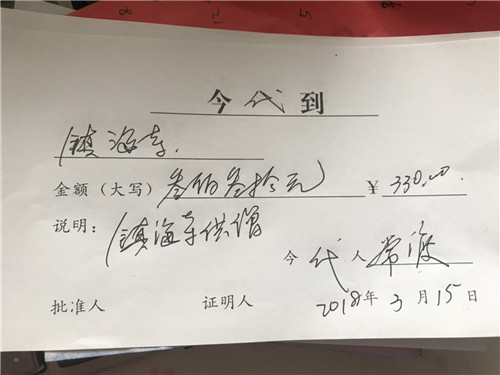 今代到
镇海寺.
金额（大写）叁佰叁拾元 ¥ 330.00
说明：镇海寺供僧
今代人
批准人 证明人 2018年3月15日